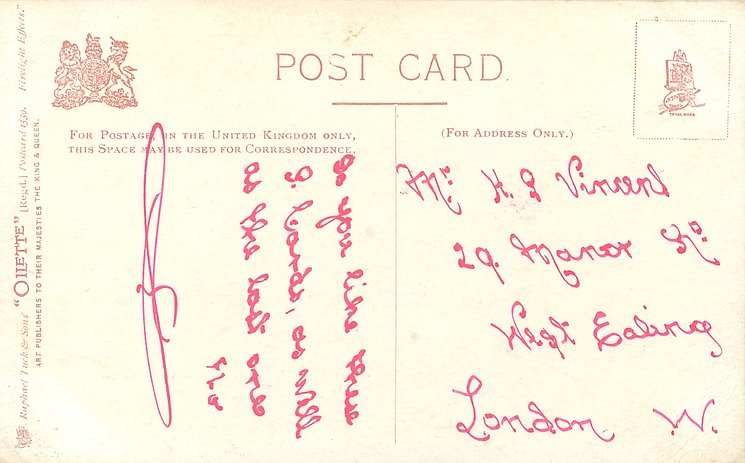 POST CARD.
FOR POSTAGE, IN THE UNITED KINGDOM ONLY,
THIS SPACE MAY BE USED FOR CORRESPONDENCE.
(FOR ADDRESS ONLY.)
TRADE MARK
Raphael Tuck & Sons' "OILETTE" [Regd.] Postcard 1559. Firelight Effects."
ART PUBLISHERS TO THEIR MAJESTIES THE KING & QUEEN.
Do you like these
P. Cards, as well
as the last ones
Mr. H. J Vincent
29. Manor Rd.
West Ealing
London W.